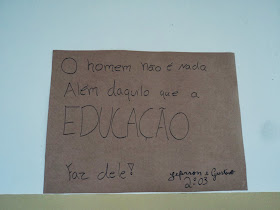 O homem não é nada
Além daquilo que a
EDUCAÇÃO
Faz dele!
Jeferson e Gustavo
2º 03